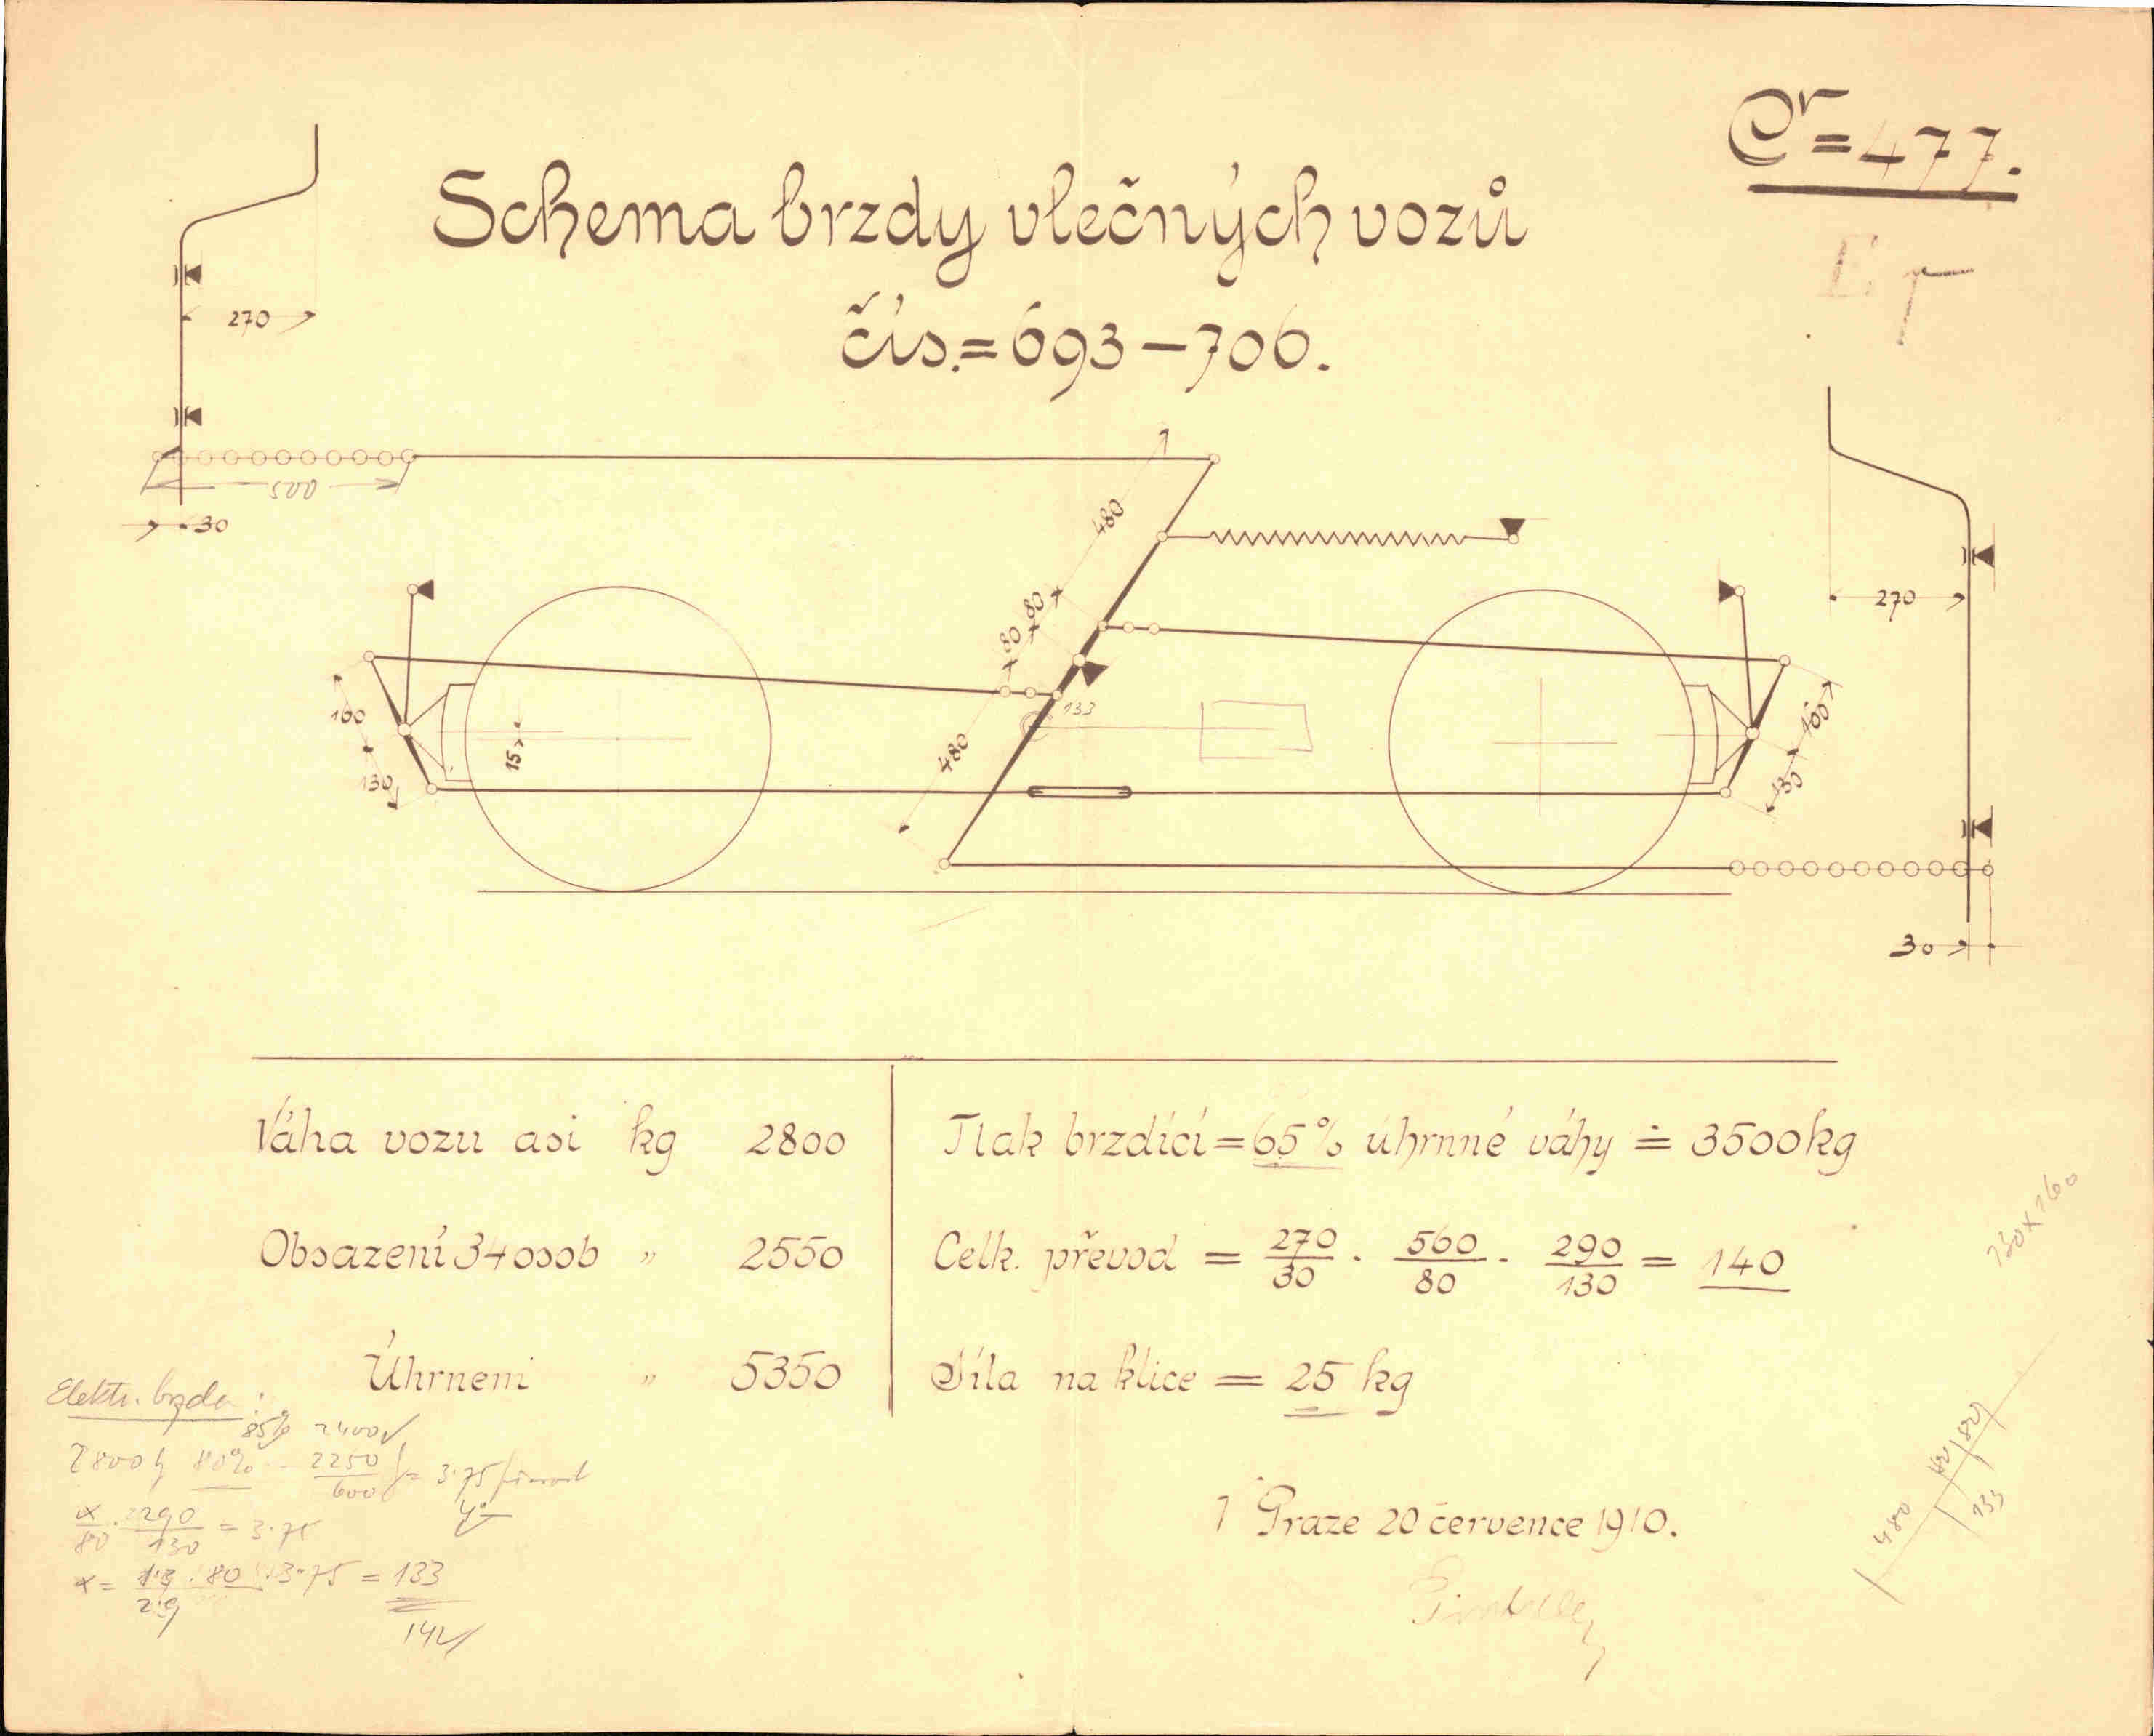 Čr=477.
Schema brzdy vlečných vozů
čís.=693–706.
270
500
30
480
80
80
133
480
270
160
130
15
160
130
30
Váha vozu asi kg 2800
Obsazení 34 osob " 2550
Úhrnem " 5350
Tlak brzdící = 65% úhrnné váhy ≐ 3500kg
Celk. převod = 270/30 . 560/80 . 290/130 = 140
Síla na klice = 25 kg
V Praze 20 července 1910.
Elektr. brzda:
85% 2400
2800 kg 80% – 2250/600 = 3.75
x/80 . 290/130 = 3.75
x = 1.3 . 80 . 3.75 / 2.9 = 133
142
130x160
480
80
80
133